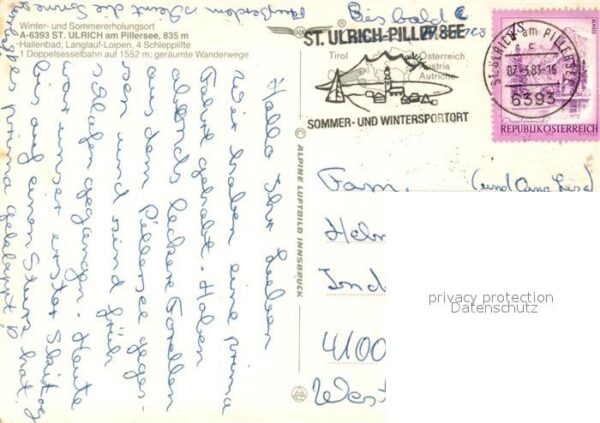 Winter- und Sommererholungsort
A-6393 ST. ULRICH am Pillersee, 835 m
Hallenbad; Langlauf-Loipen, 4 Schlepplifte
1 Doppelsesselbahn auf 1552 m; geräumte Wanderwege
Tirol
Österreich
Austria
Autriche
ST. ULRICH-PILLERSEE
SOMMER- UND WINTERSPORTORT
ST. ULRICH am PILLERSEE
6393
REPUBLIK ÖSTERREICH
© ALPINE LUFTBILD INNSBRUCK
Hallo Ihr Lieben
Wir haben eine prima
Fahrt gehabt. Haben
abends leckere Forellen
aus dem Pillersee geges-
sen und sind früh
schlafen gegangen. Heute
war unser erster Skitag
bis auf einen Sturz hat
prima geklappt
scheint die Sonne
Bis bald
Fam.
4100
privacy protection
Datenschutz